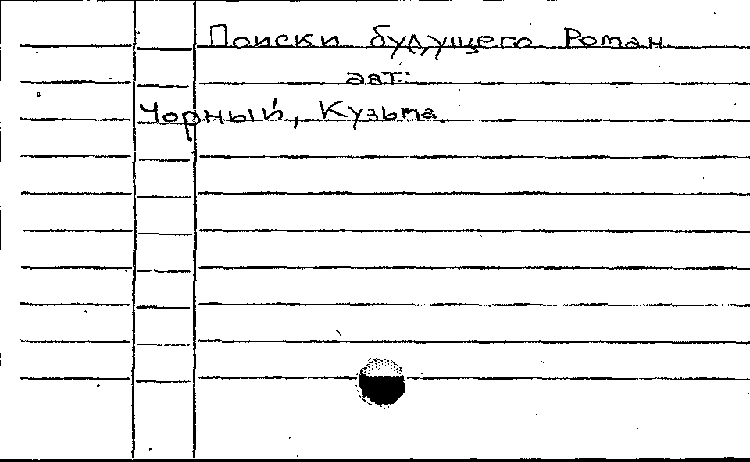 Поиски будущего. Роман
авт:
Чорный, Кузьма.